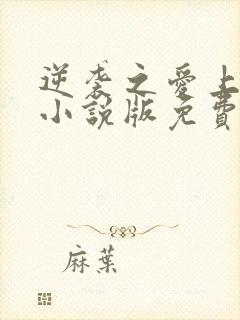 逆袭之愛上
小說版免費
麻葉